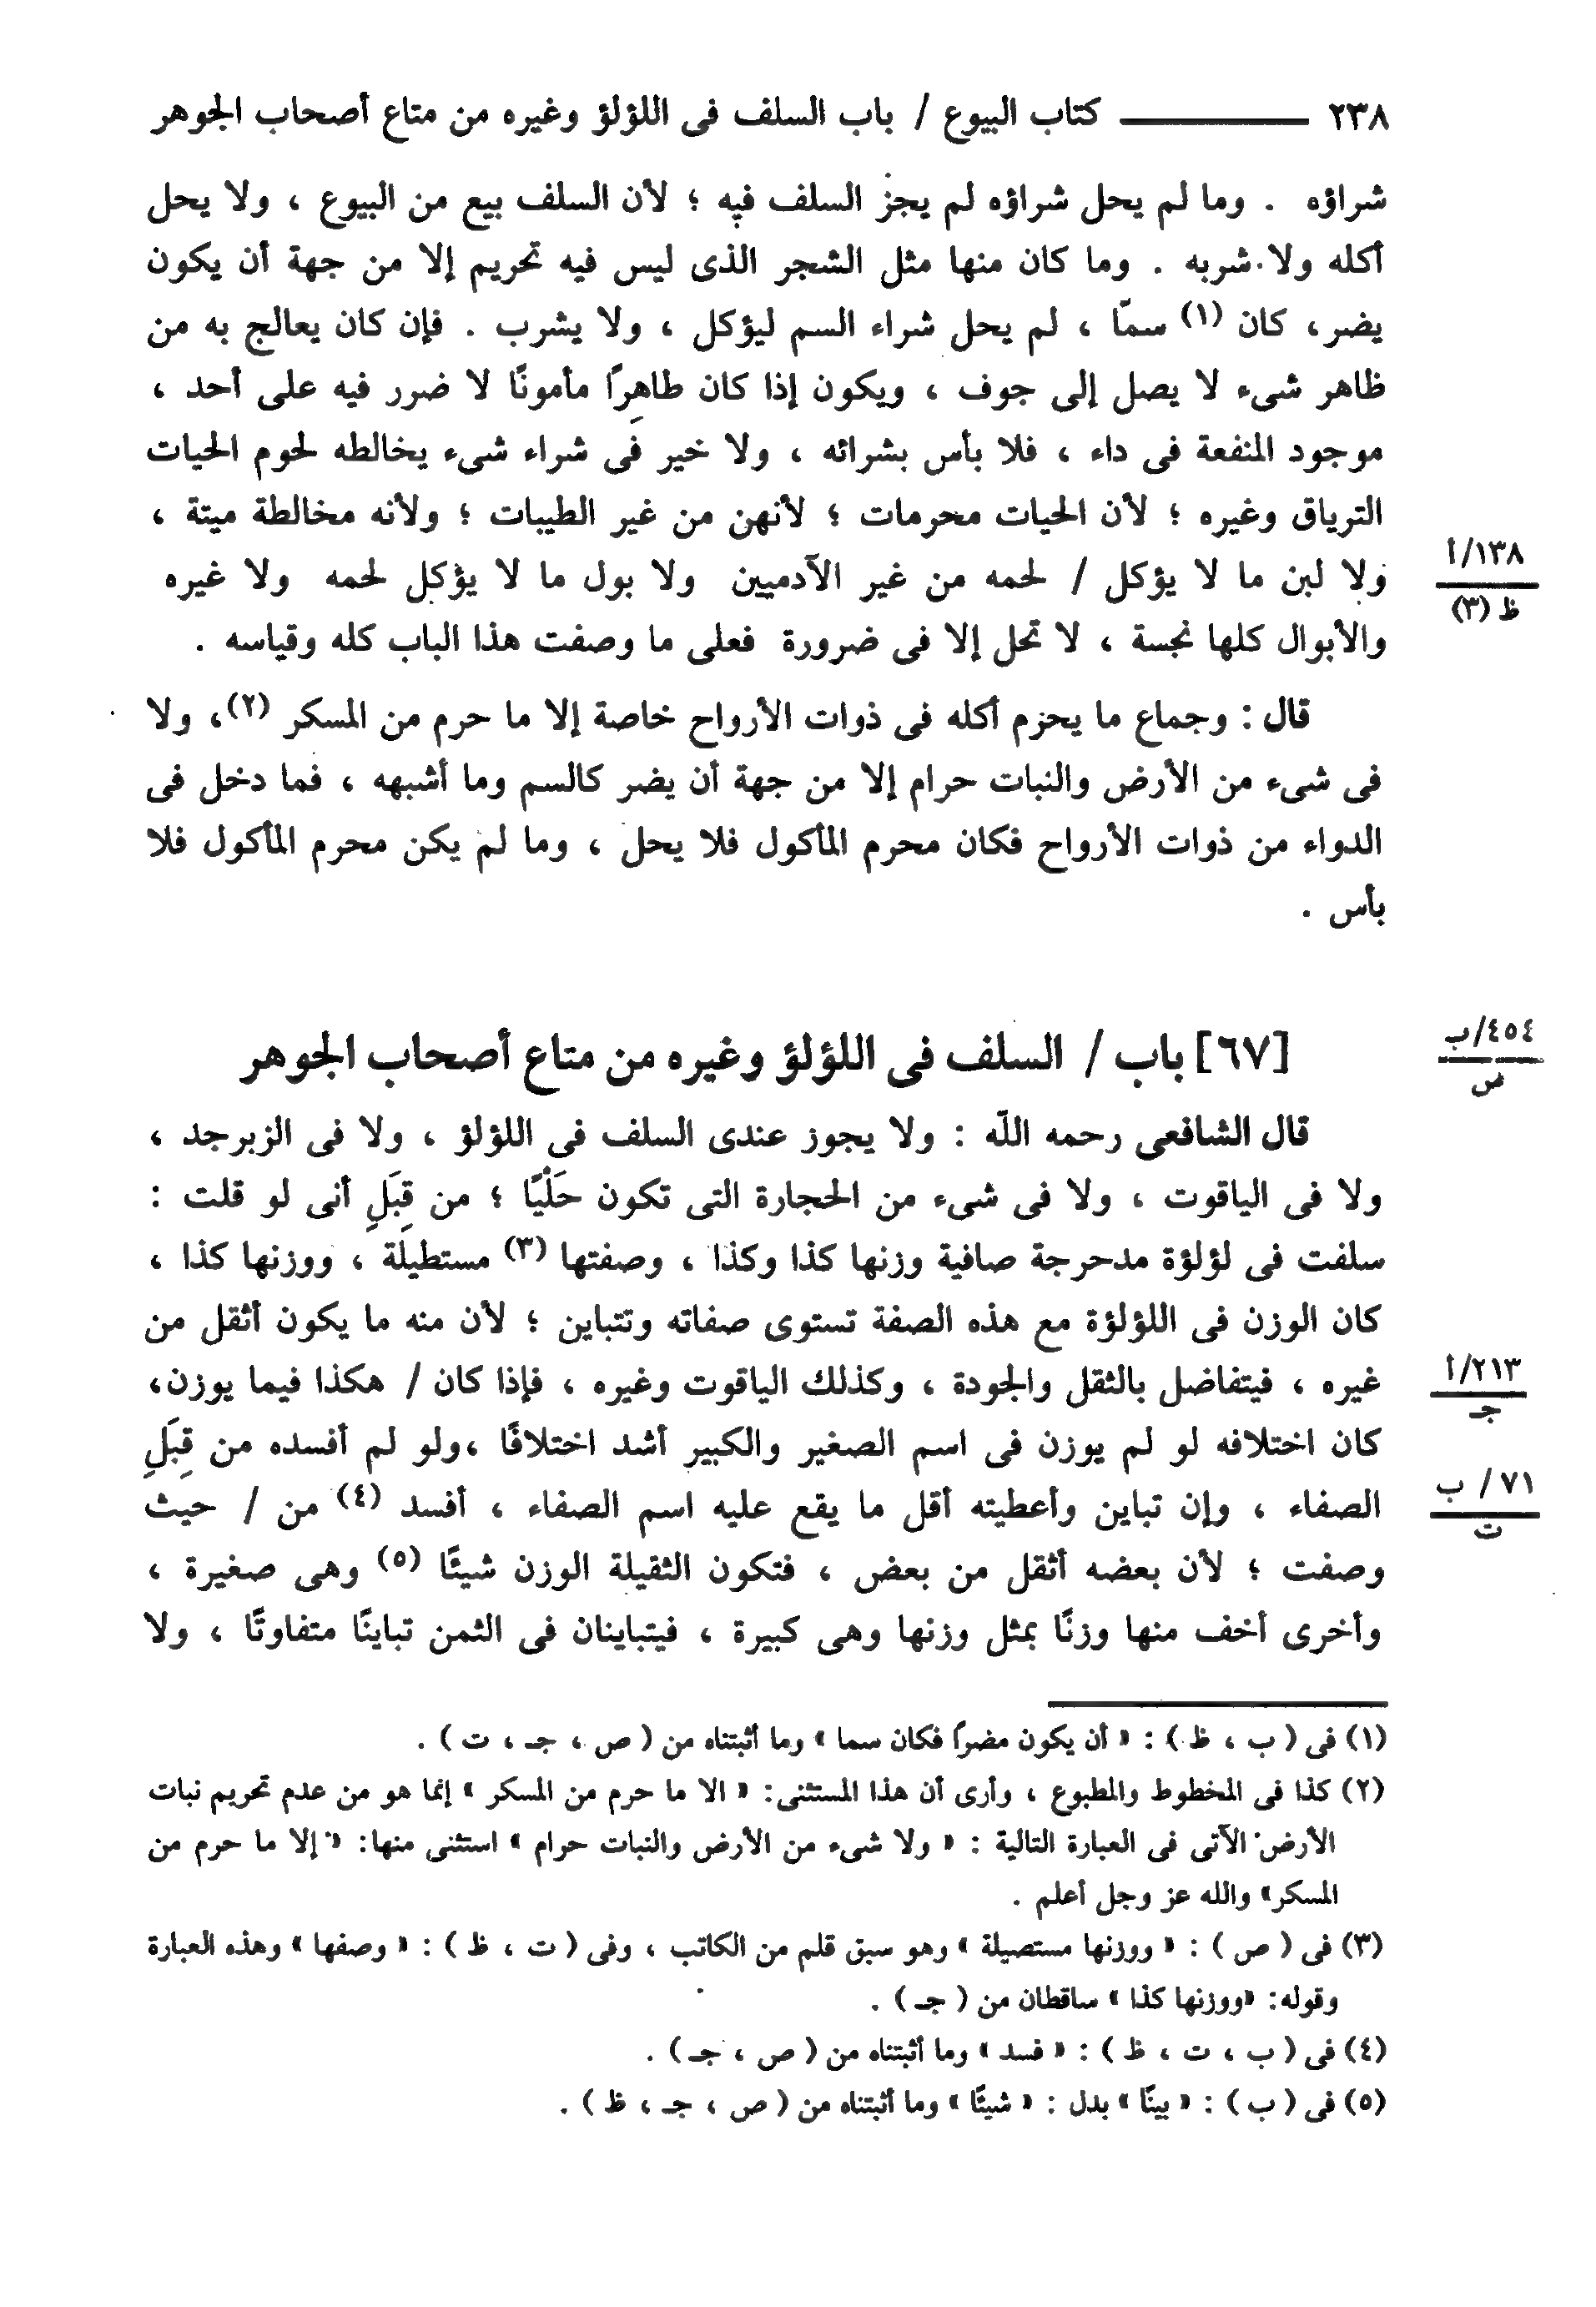 ٢٣٨ ــــــــــ كتاب البيوع / باب السلف فى اللؤلؤ وغيره من متاع أصحاب الجوهر
شراؤه . وما لم يحل شراؤه لم يجز السلف فيه ؛ لأن السلف بيع من البيوع ، ولا يحل
أكله ولا شربه . وما كان منها مثل الشجر الذى ليس فيه تحريم إلا من جهة أن يكون
يضر، كان (١) سمّا ، لم يحل شراء السم ليؤكل ، ولا يشرب . فإن كان يعالج به من
ظاهر شىء لا يصل إلى جوف ، ويكون إذا كان طاهِرًا مأمونًا لا ضرر فيه على أحد ،
موجود المنفعة فى داء ، فلا بأس بشرائه ، ولا خير فى شراء شىء يخالطه لحوم الحيات
الترياق وغيره ؛ لأن الحيات محرمات ؛ لأنهن من غير الطيبات ؛ ولأنه مخالطة ميتة ،
ولا لبن ما لا يؤكل / لحمه من غير الآدميين ولا بول ما لا يؤكل لحمه ولا غيره
١٣٨/أ
ظ (٣)
والأبوال كلها نجسة ، لا تحل إلا فى ضرورة فعلى ما وصفت هذا الباب كله وقياسه .
قال : وجماع ما يحرم أكله فى ذوات الأرواح خاصة إلا ما حرم من المسكر (٢)، ولا
فى شىء من الأرض والنبات حرام إلا من جهة أن يضر كالسم وما أشبهه ، فما دخل فى
الدواء من ذوات الأرواح فكان محرم المأكول فلا يحل ، وما لم يكن محرم المأكول فلا
بأس .
[٦٧] باب / السلف فى اللؤلؤ وغيره من متاع أصحاب الجوهر
٤٥٤/ب
ص
قال الشافعى رحمه اللّه : ولا يجوز عندى السلف فى اللؤلؤ ، ولا فى الزبرجد ،
ولا فى الياقوت ، ولا فى شىء من الحجارة التى تكون حَلْيًا ؛ من قِبَلِ أنى لو قلت :
سلفت فى لؤلؤة مدحرجة صافية وزنها كذا وكذا ، وصفتها (٣) مستطيلة ، ووزنها كذا ،
كان الوزن فى اللؤلؤة مع هذه الصفة تستوى صفاته وتتباين ؛ لأن منه ما يكون أثقل من
غيره ، فيتفاضل بالثقل والجودة ، وكذلك الياقوت وغيره ، فإذا كان / هكذا فيما يوزن،
٢١٣/أ
جـ
كان اختلافه لو لم يوزن فى اسم الصغير والكبير أشد اختلافًا ،ولو لم أفسده من قِبَلِ
الصفاء ، وإن تباين وأعطيته أقل ما يقع عليه اسم الصفاء ، أفسد (٤) من / حيث
٧١ / ب
ت
وصفت ؛ لأن بعضه أثقل من بعض ، فتكون الثقيلة الوزن شيئًا (٥) وهى صغيرة ،
وأخرى أخف منها وزنًا بمثل وزنها وهى كبيرة ، فيتباينان فى الثمن تباينًا متفاوتًا ، ولا
(١) فى ( ب ، ظ ) : « أن يكون مضرًا فكان سما » وما أثبتناه من ( ص ، جـ ، ت ) .
(٢) كذا فى المخطوط والمطبوع ، وأرى أن هذا المستثنى: « الا ما حرم من المسكر » إنما هو من عدم تحريم نبات
الأرض الآتى فى العبارة التالية : « ولا شىء من الأرض والنبات حرام » استثنى منها: « إلا ما حرم من
المسكر» والله عز وجل أعلم .
(٣) فى ( ص ) : « ووزنها مستصيلة » وهو سبق قلم من الكاتب ، وفى ( ت ، ظ ) : « وصفها » وهذه العبارة
وقوله: «ووزنها كذا » ساقطان من ( جـ ) .
(٤) فى ( ب ، ت ، ظ ) : « فسد » وما أثبتناه من ( ص ، جـ ) .
(٥) فى ( ب ) : « بينًا » بدل : « شيئًا » وما أثبتناه من ( ص ، جـ ، ظ ) .